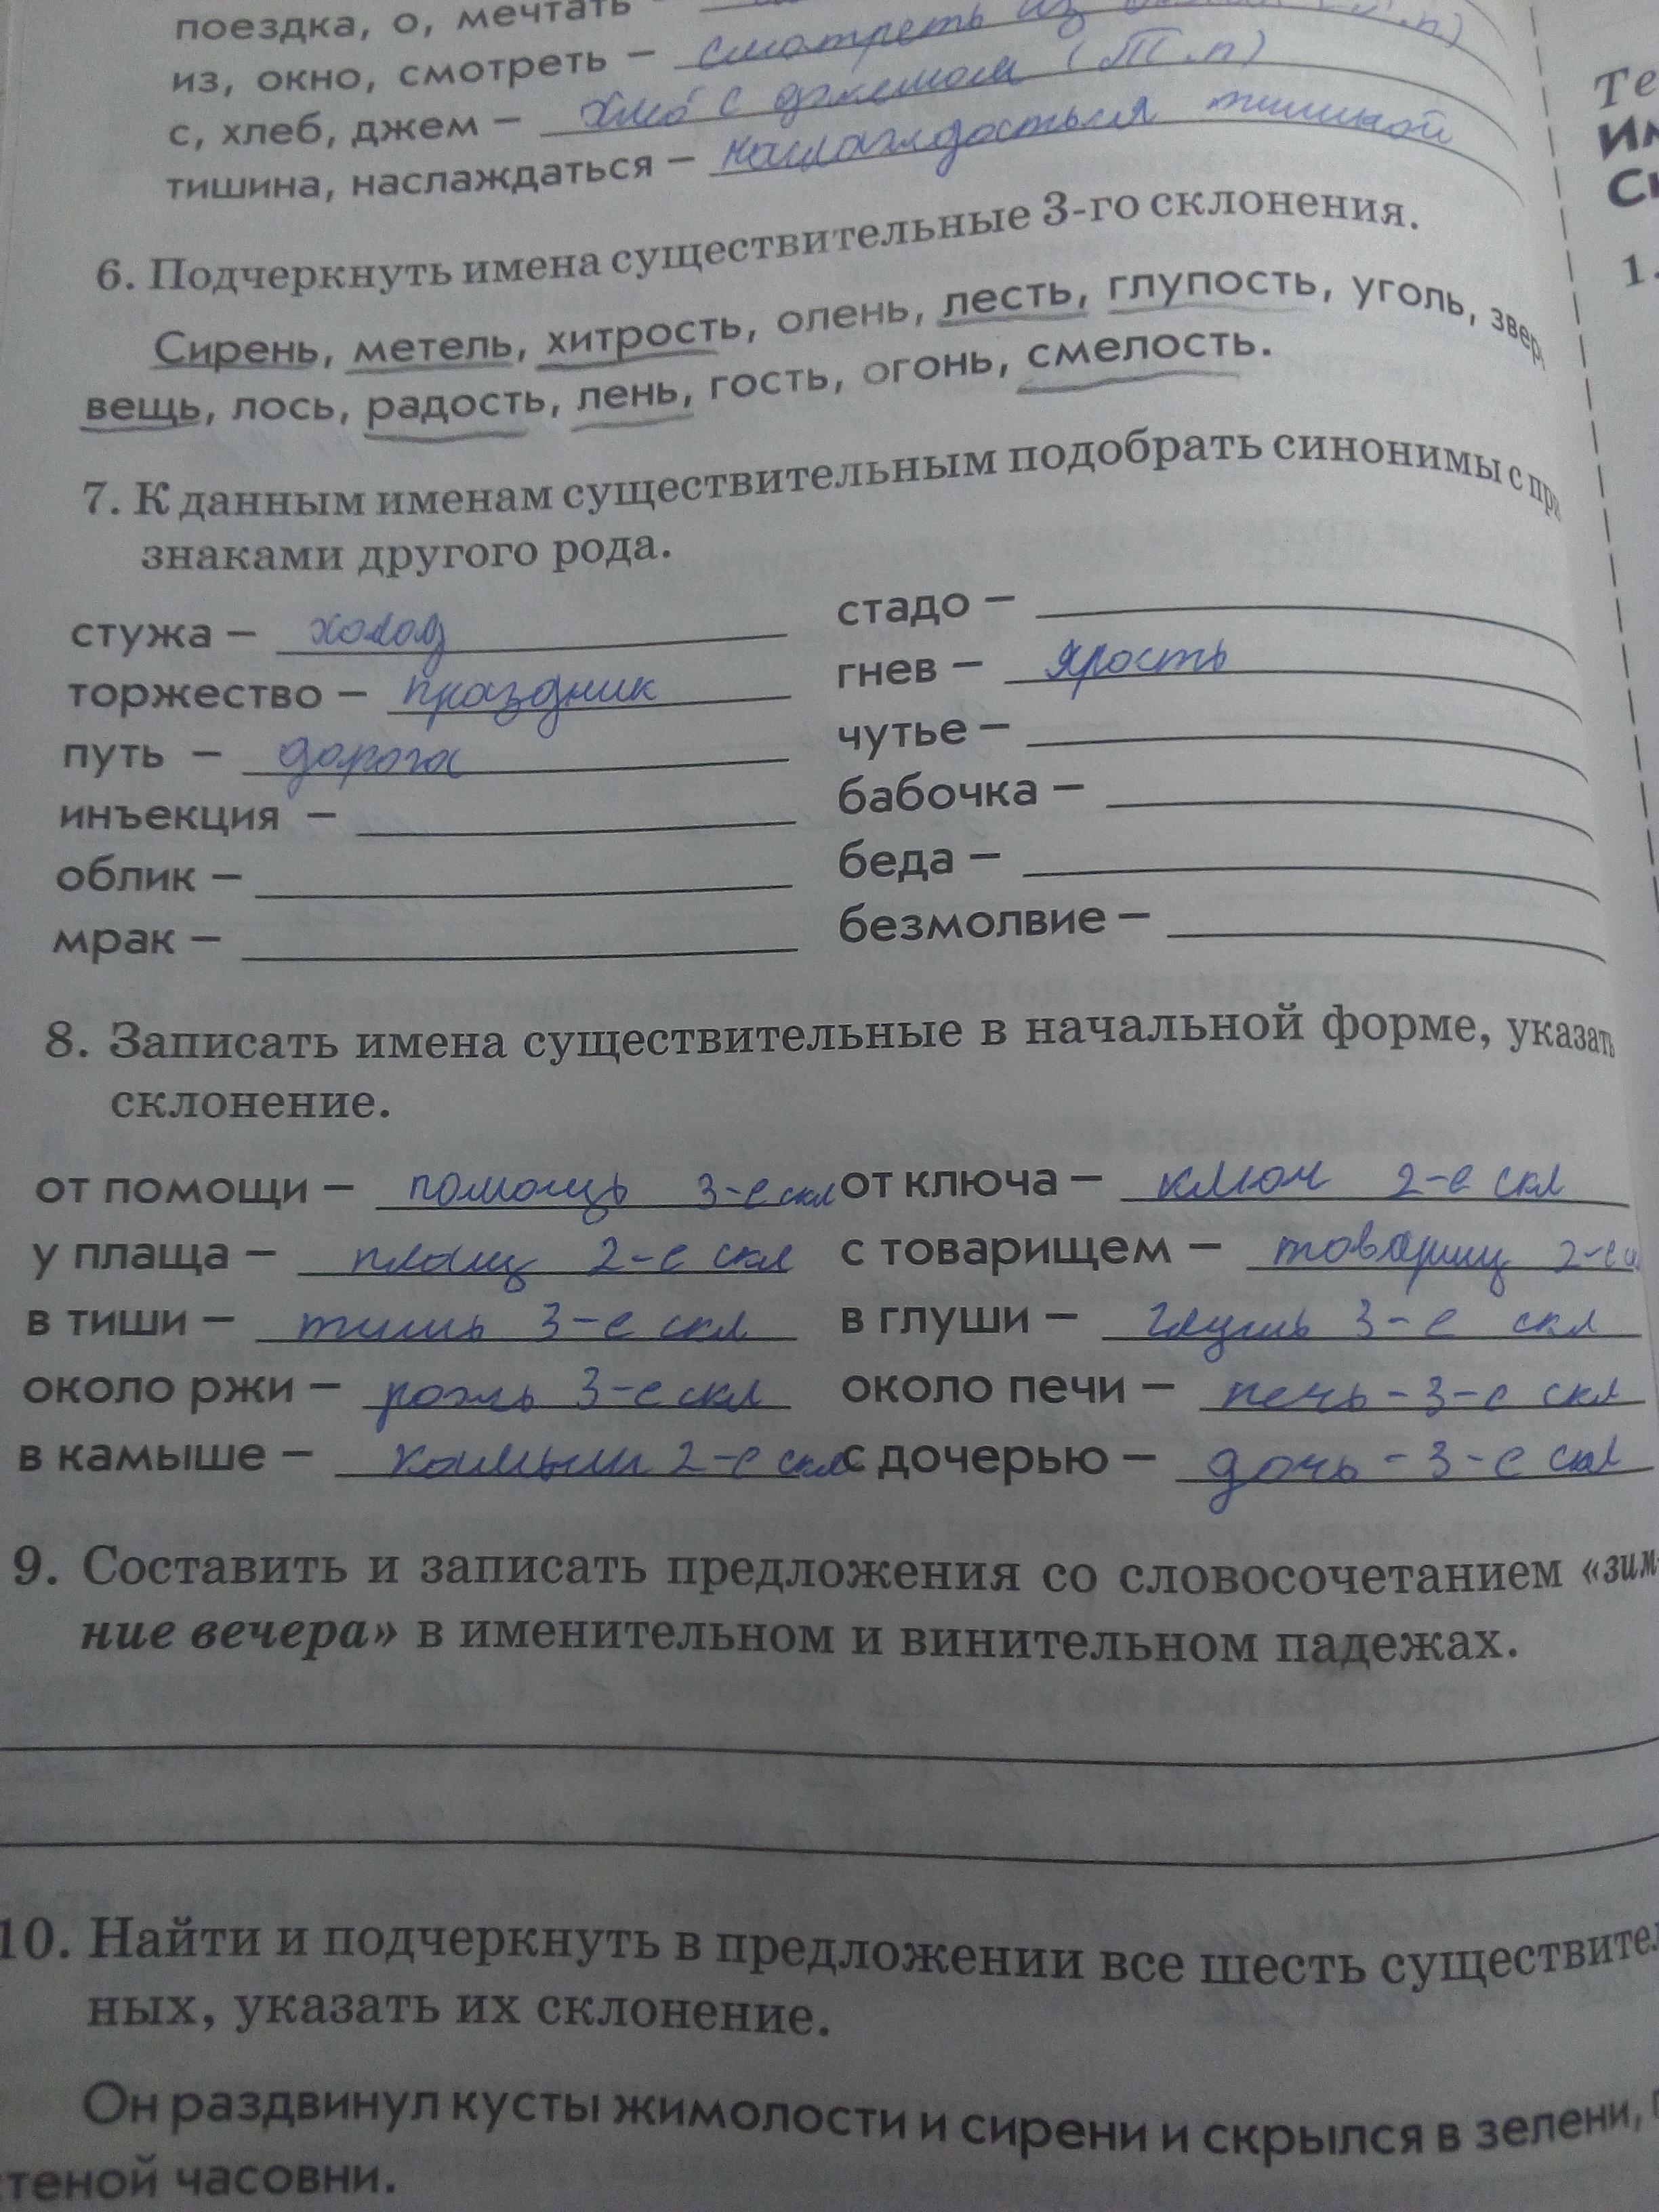 поездка, о, мечтать –
из, окно, смотреть – смотреть из п)
с, хлеб, джем – хлеб с джемом (Т.п)
тишина, наслаждаться – наслаждаться тишиной
6. Подчеркнуть имена существительные 3-го склонения.
Сирень, метель, хитрость, олень, лесть, глупость, уголь, звер
вещь, лось, радость, лень, гость, огонь, смелость.
7. К данным именам существительным подобрать синонимы с при
знаками другого рода.
стужа – холод
торжество – праздник
путь – дорога
инъекция –
облик –
мрак –
стадо –
гнев – ярость
чутье –
бабочка –
беда –
безмолвие –
8. Записать имена существительные в начальной форме, указать
склонение.
от помощи – помощь 3-е скл
у плаща – плащ 2-е скл
в тиши – тишь 3-е скл
около ржи – рожь 3-е скл
в камыше – камыш 2-е скл
от ключа – ключ 2-е скл
с товарищем – товарищ 2-е
в глуши – глушь 3-е скл
около печи – печь - 3-е скл
с дочерью – дочь - 3-е скл
9. Составить и записать предложения со словосочетанием «зим-
ние вечера» в именительном и винительном падежах.
10. Найти и подчеркнуть в предложении все шесть существител
ных, указать их склонение.
Он раздвинул кусты жимолости и сирени и скрылся в зелени,
стеной часовни.
Те
Им
Си
1.